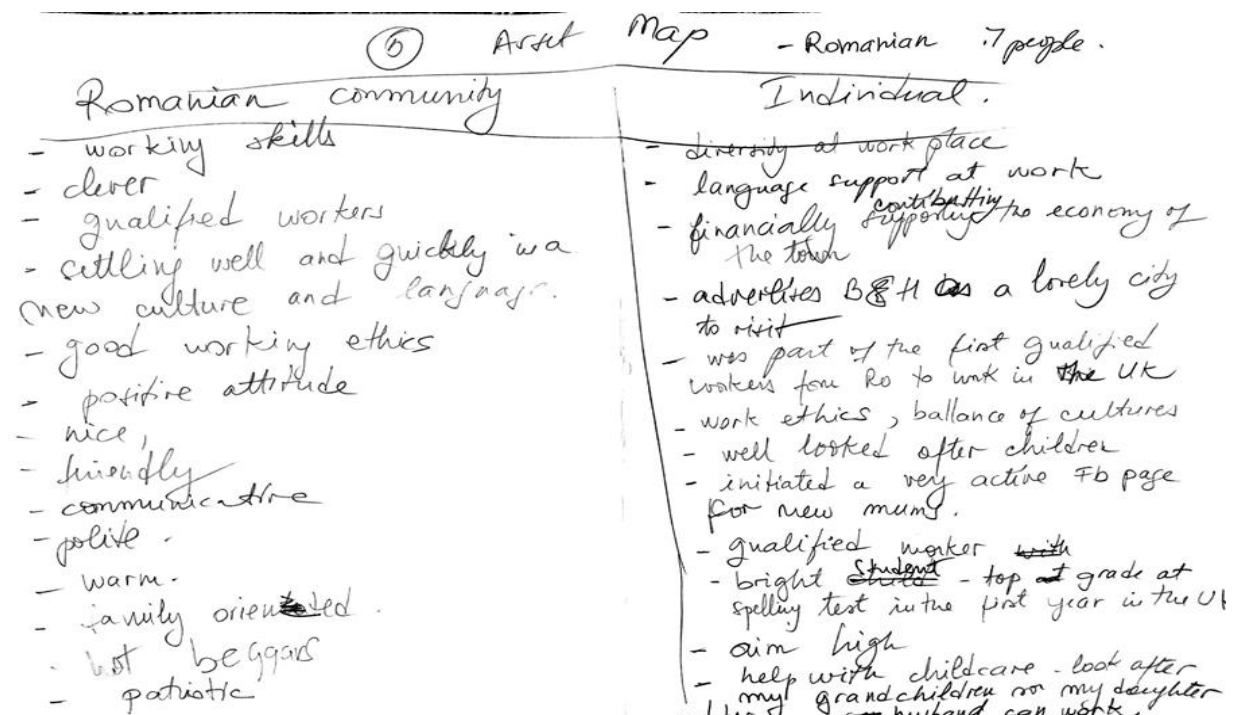 ⑤ Asset Map - Romanian : 7 people.
Romanian community
- working skills
- clever
- qualified workers
- settling well and quickly in a
new culture and language.
- good working ethics
- positive attitude
- nice,
- friendly
- communicative
- polite.
- warm.
- family oriented.
- not beggars
- patriotic
Individual.
- diversity at work place
- language support at work
- financially supporting contributting to economy of
the town
- advertises B&H as a lovely city
to visit
- was part of the first qualified
workers fom Ro to work in the UK
- work ethics, ballance of cultures
- well looked after children
- initiated a very active Fb page
for new mums.
- qualified worker with
- bright student - top grade at
spelling test in the first year in the UK
- aim high
- help with childcare - look after
my grandchildren so my daughter
husband can work.